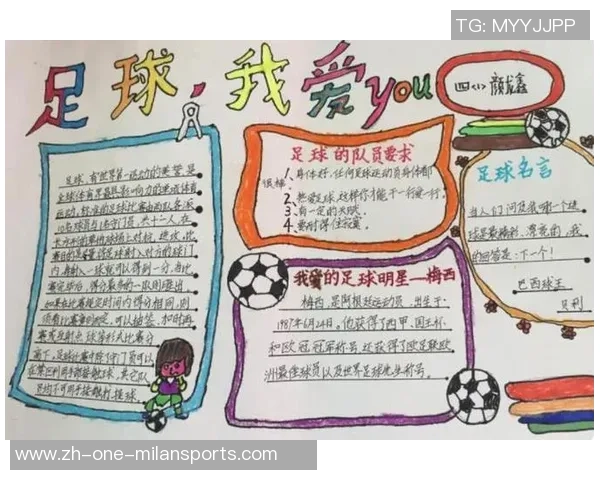 TG: MYYJJPP
足球，我爱you
四〈1〉颜龙鑫
足球，有"世界第一运动"的美誉，是
全球体育界最具影响力的单项体育
运动，标准的足球比赛由两队各派
10名球员与1名守门员，共十二人，在
长方形的草地球场上对抗、进攻，比
赛目的是尽量将足球射入对方的球门
内，每射入一球就可以得到一分，当比
赛完毕后，得分最多的一队则胜出，
如果在比赛规定时间内得分相同，则
须看比赛章则而定，可以抽签、加时再
赛或互射点球等形式比赛分
高下，足球比赛中除了守门员可以
在禁区利用手部接触足球，其它队
员均不可用手接触打、接球。
足球的队员要求
1.身体好，任何足球运动员身体都
很棒。
2.热爱足球，这样你才能干一行爱一行。
3.有一定的天赋。
4.要耐得住寂寞。
足球名言
当人们问及我哪一个进
球是最精彩、漂亮的，我
的回答是：下一个！
巴西球王
贝利
我爱的足球明星—梅西
梅西，是阿根廷运动员，出生于
1987年6月24日，他获得了西甲、国王杯
和欧冠冠军称号，还获得了欧足联欧
洲最佳球员以及世界足球先生称号。
www.zh-one-milansports.com